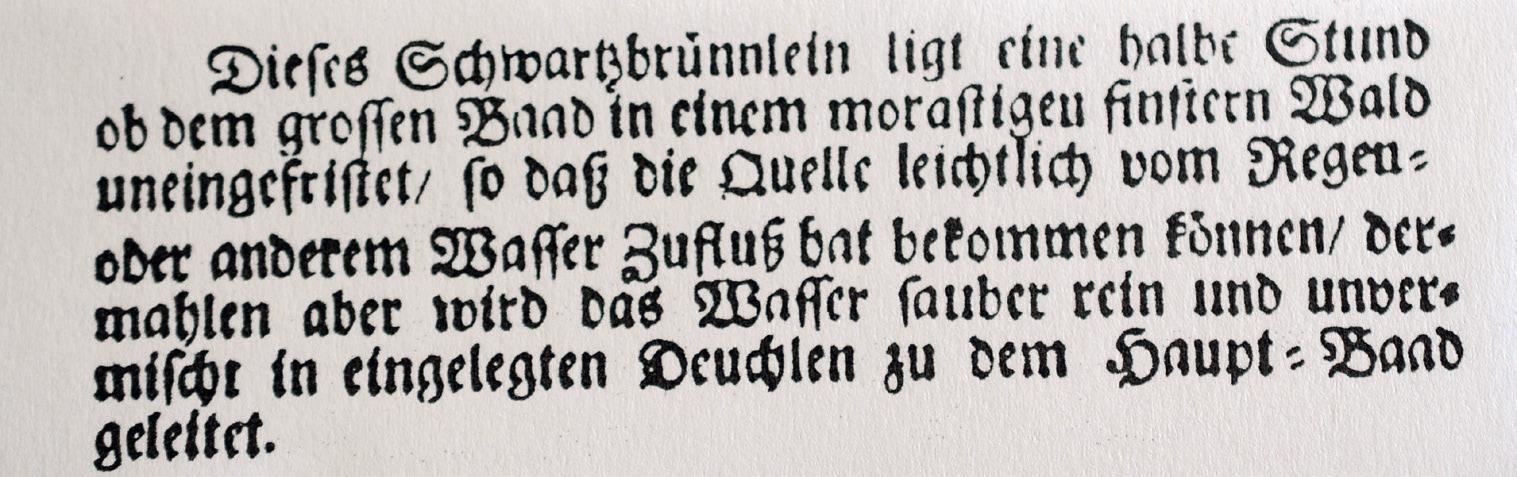 Dieſes Schwartzbrünnlein ligt eine halbe Stund
ob dem groſſen Baad in einem moraſtigen finſtern Wald
uneingefriſtet/ ſo daß die Quelle leichtlich vom Regen⸗
oder anderem Waſſer Zufluß hat bekommen können/ der⸗
mahlen aber wird das Waſſer ſauber rein und unver⸗
miſcht in eingelegten Deuchlen zu dem Haupt⸗Baad
geleitet.